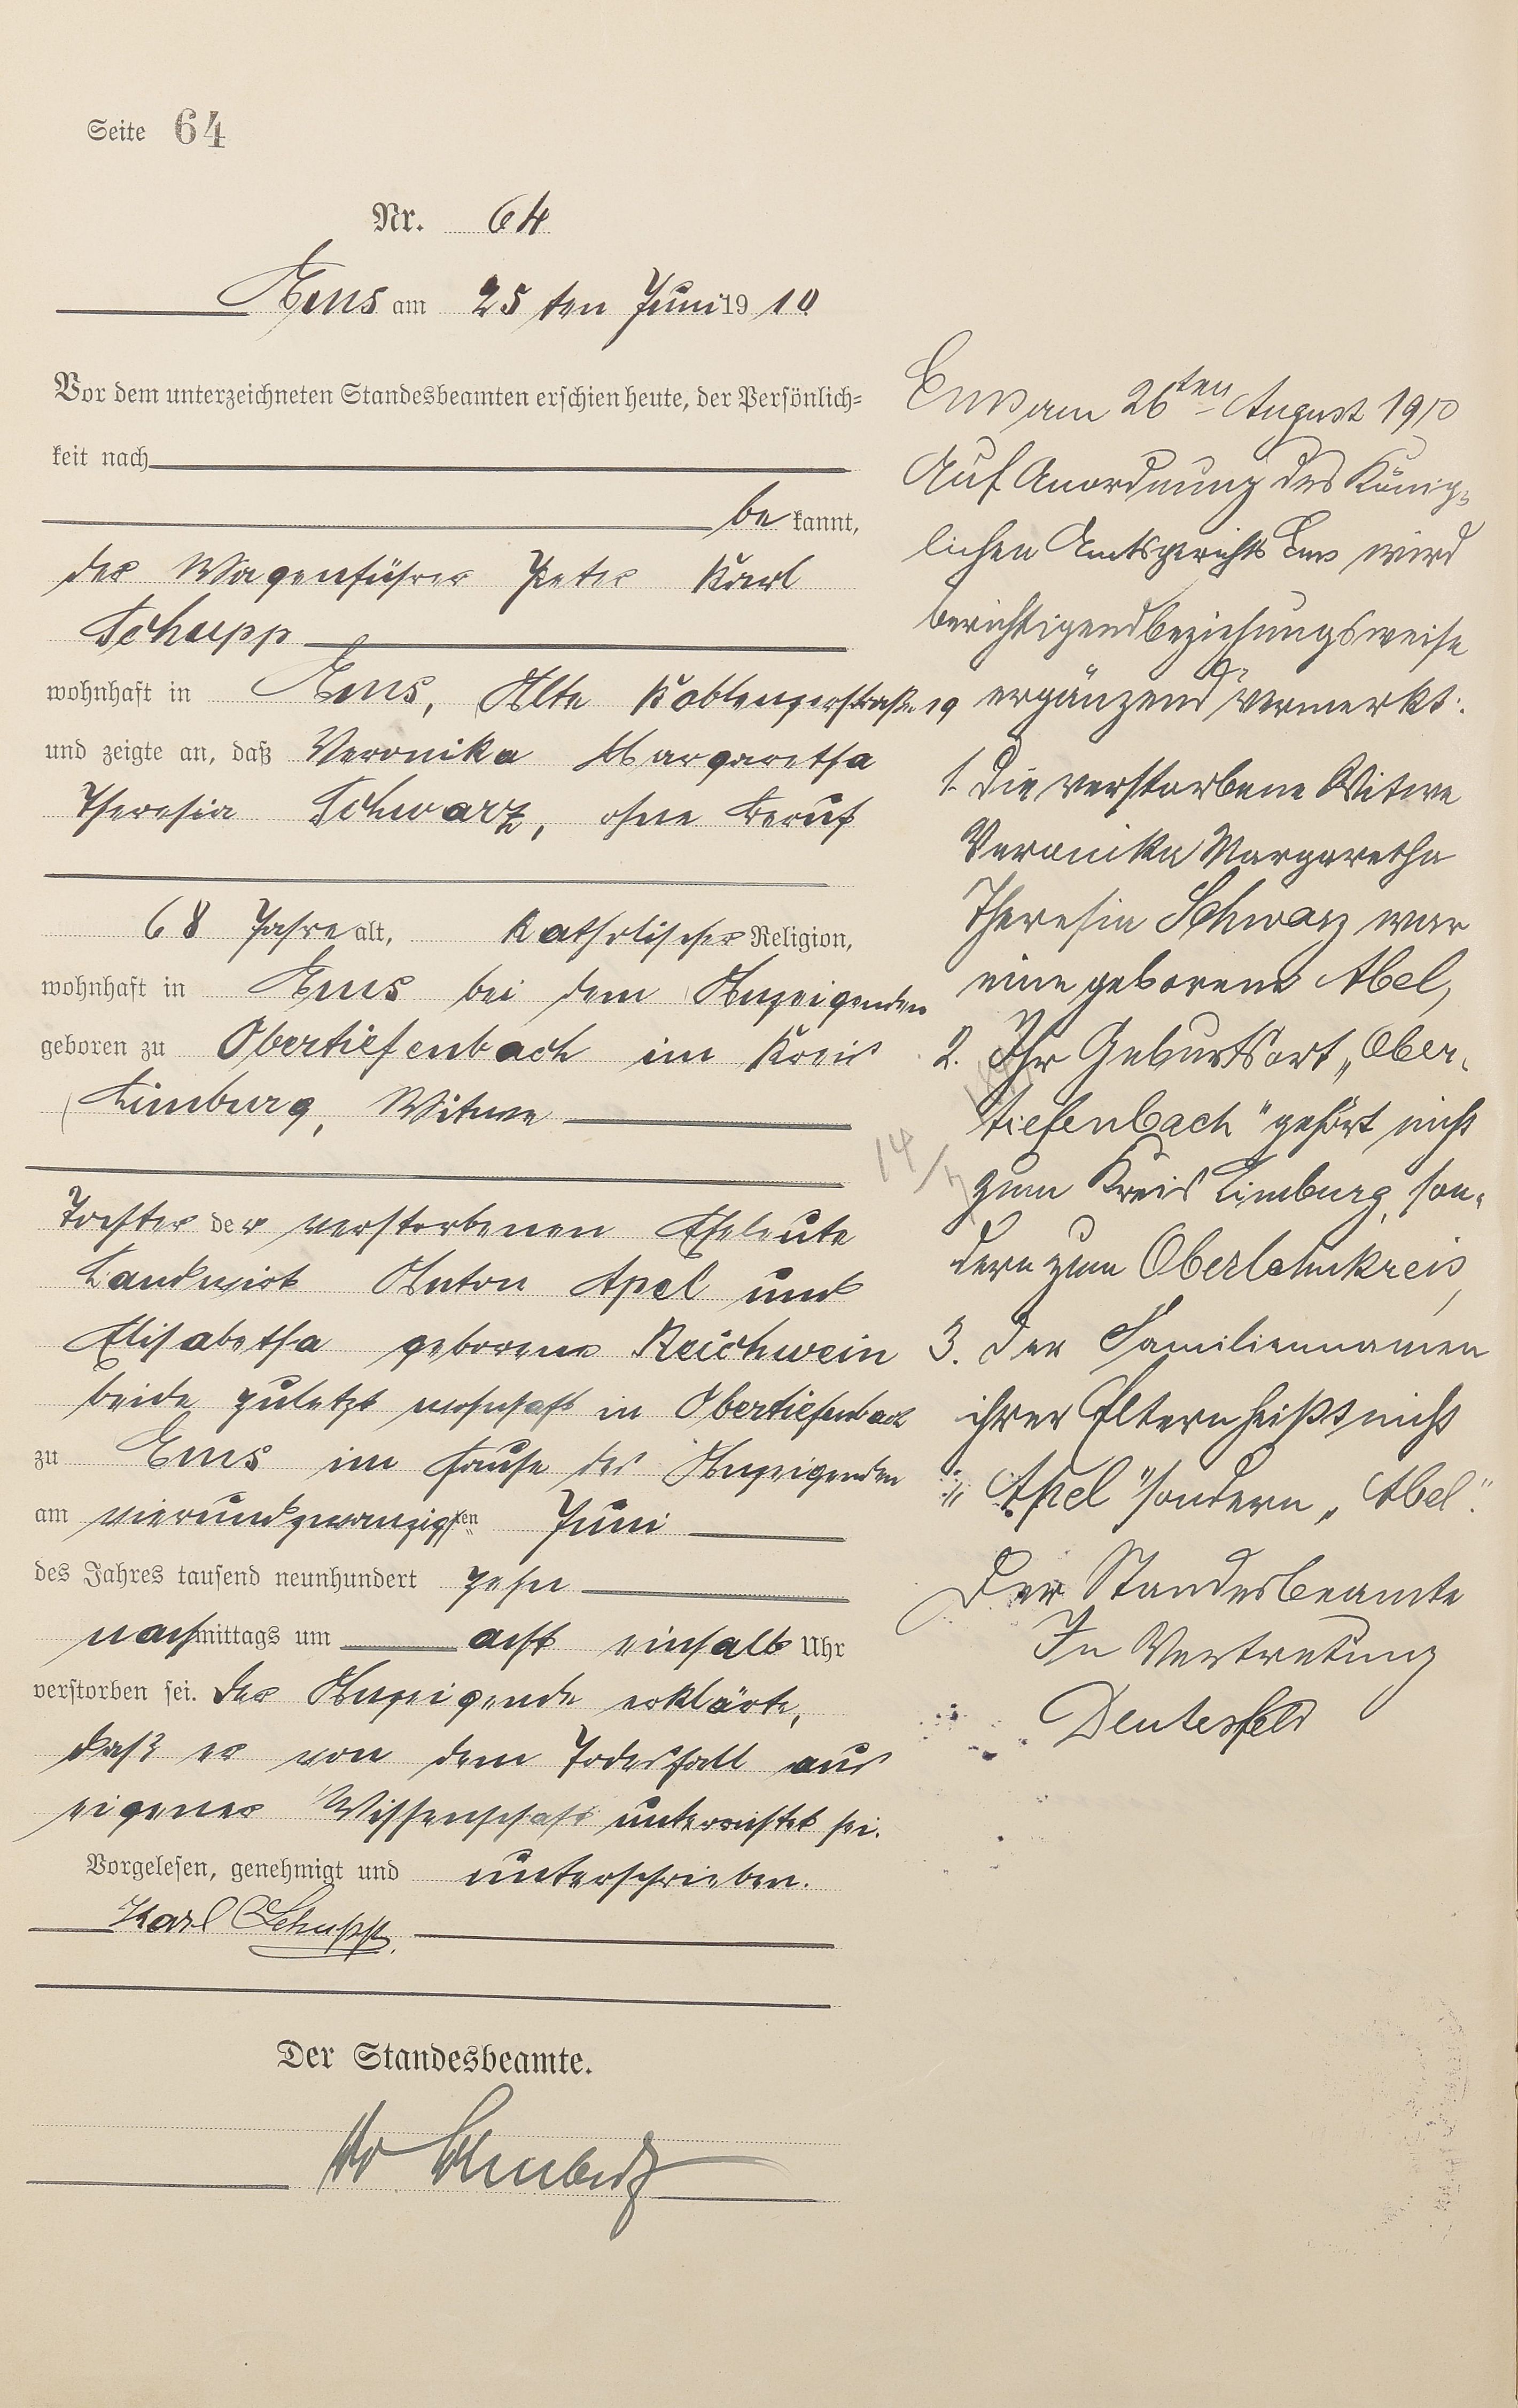 Seite 64
Nr. 64
Ems am 25 ten Juni 1910
Vor dem unterzeichneten Standesbeamten erschien heute, der Persönlich=
keit nach
be kannt,
der Wagenführer Peter Karl
Schupp
wohnhaft in Ems, Alte Koblenzerstraße 19
und zeigte an, daß Veronika Margaretha
Theresia Schwarz, ohne Beruf
68 Jahre alt, katholischer Religion,
wohnhaft in Ems bei dem Anzeigenden
geboren zu Obertiefenbach im Kreis
Limburg, Witwe
Tochter der verstorbenen Eheleute
Landwirt Anton Apel und
Elisabetha geborene Reichwein
beide zuletzt wohnhaft in Obertiefenbach
zu Ems im Hause des Anzeigenden
am vierundzwanzigsten Juni
des Jahres tausend neunhundert zehn
nachmittags um acht einhalb Uhr
verstorben sei. Der Anzeigende erklärte,
daß er von dem Todesfall aus
eigener Wissenschaft unterrichtet sei.
Vorgelesen, genehmigt und unterschrieben.
Karl Schupp.
Der Standesbeamte.
Ems am 26ten August 1910
Auf Anordnung des König=
lichen Amtsgerichts Ems wird
berichtigend beziehungsweise
ergänzend vermerkt:
1. Die verstorbene Witwe
Veronika Margaretha
Theresia Schwarz war
eine geborene Abel,
2. Ihr Geburtsort „Ober-
tiefenbach" gehört nicht
zum Kreis Limburg, son-
dern zum Oberlahnkreis,
3. Der Familiennamen
ihrer Eltern heißt nicht
„Apel" sondern „Abel".
Der Standesbeamte
In Vertretung
Deutesfeld